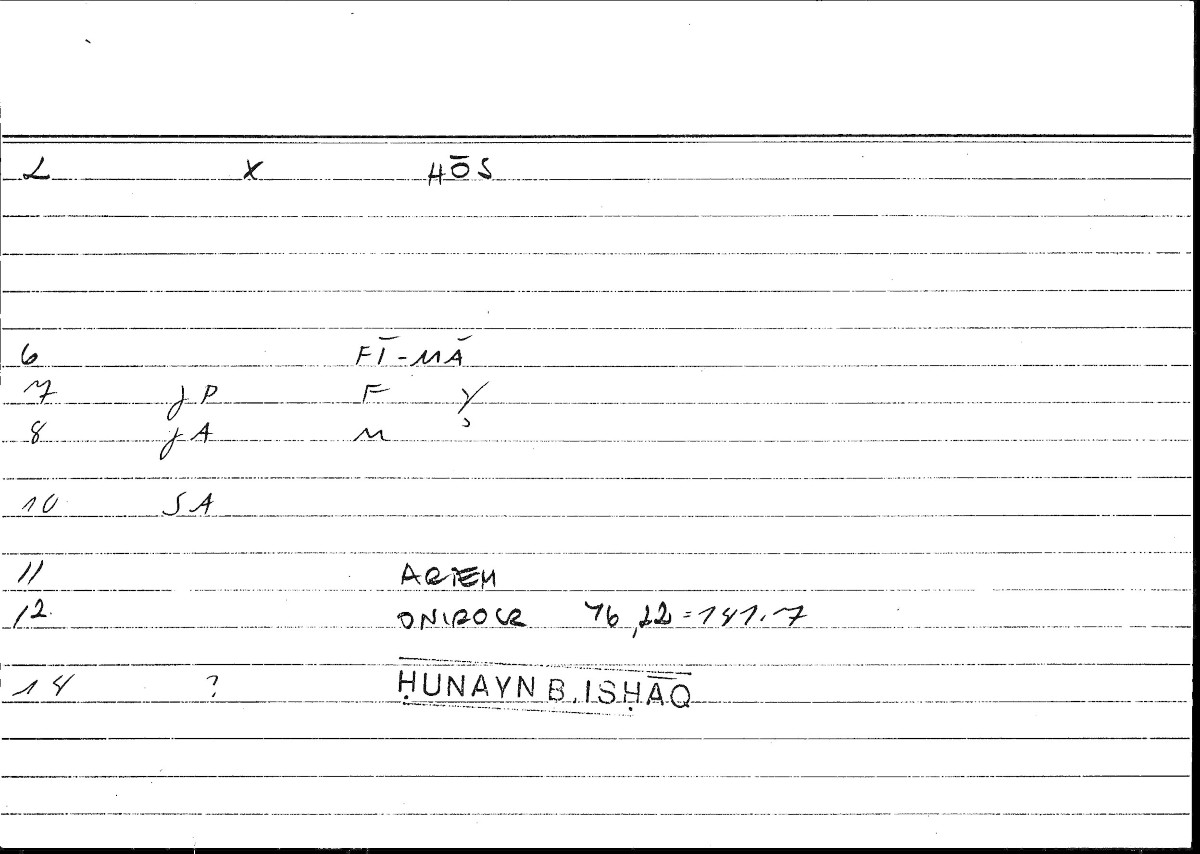 L X HŌS
6 FĪ-MĀ
7 JP F Y
8 JA M
10 SA
11 ARTEM
12. ONIROCR 76,22=141.7
14 ? ḤUNAYN B. ISḤĀQ